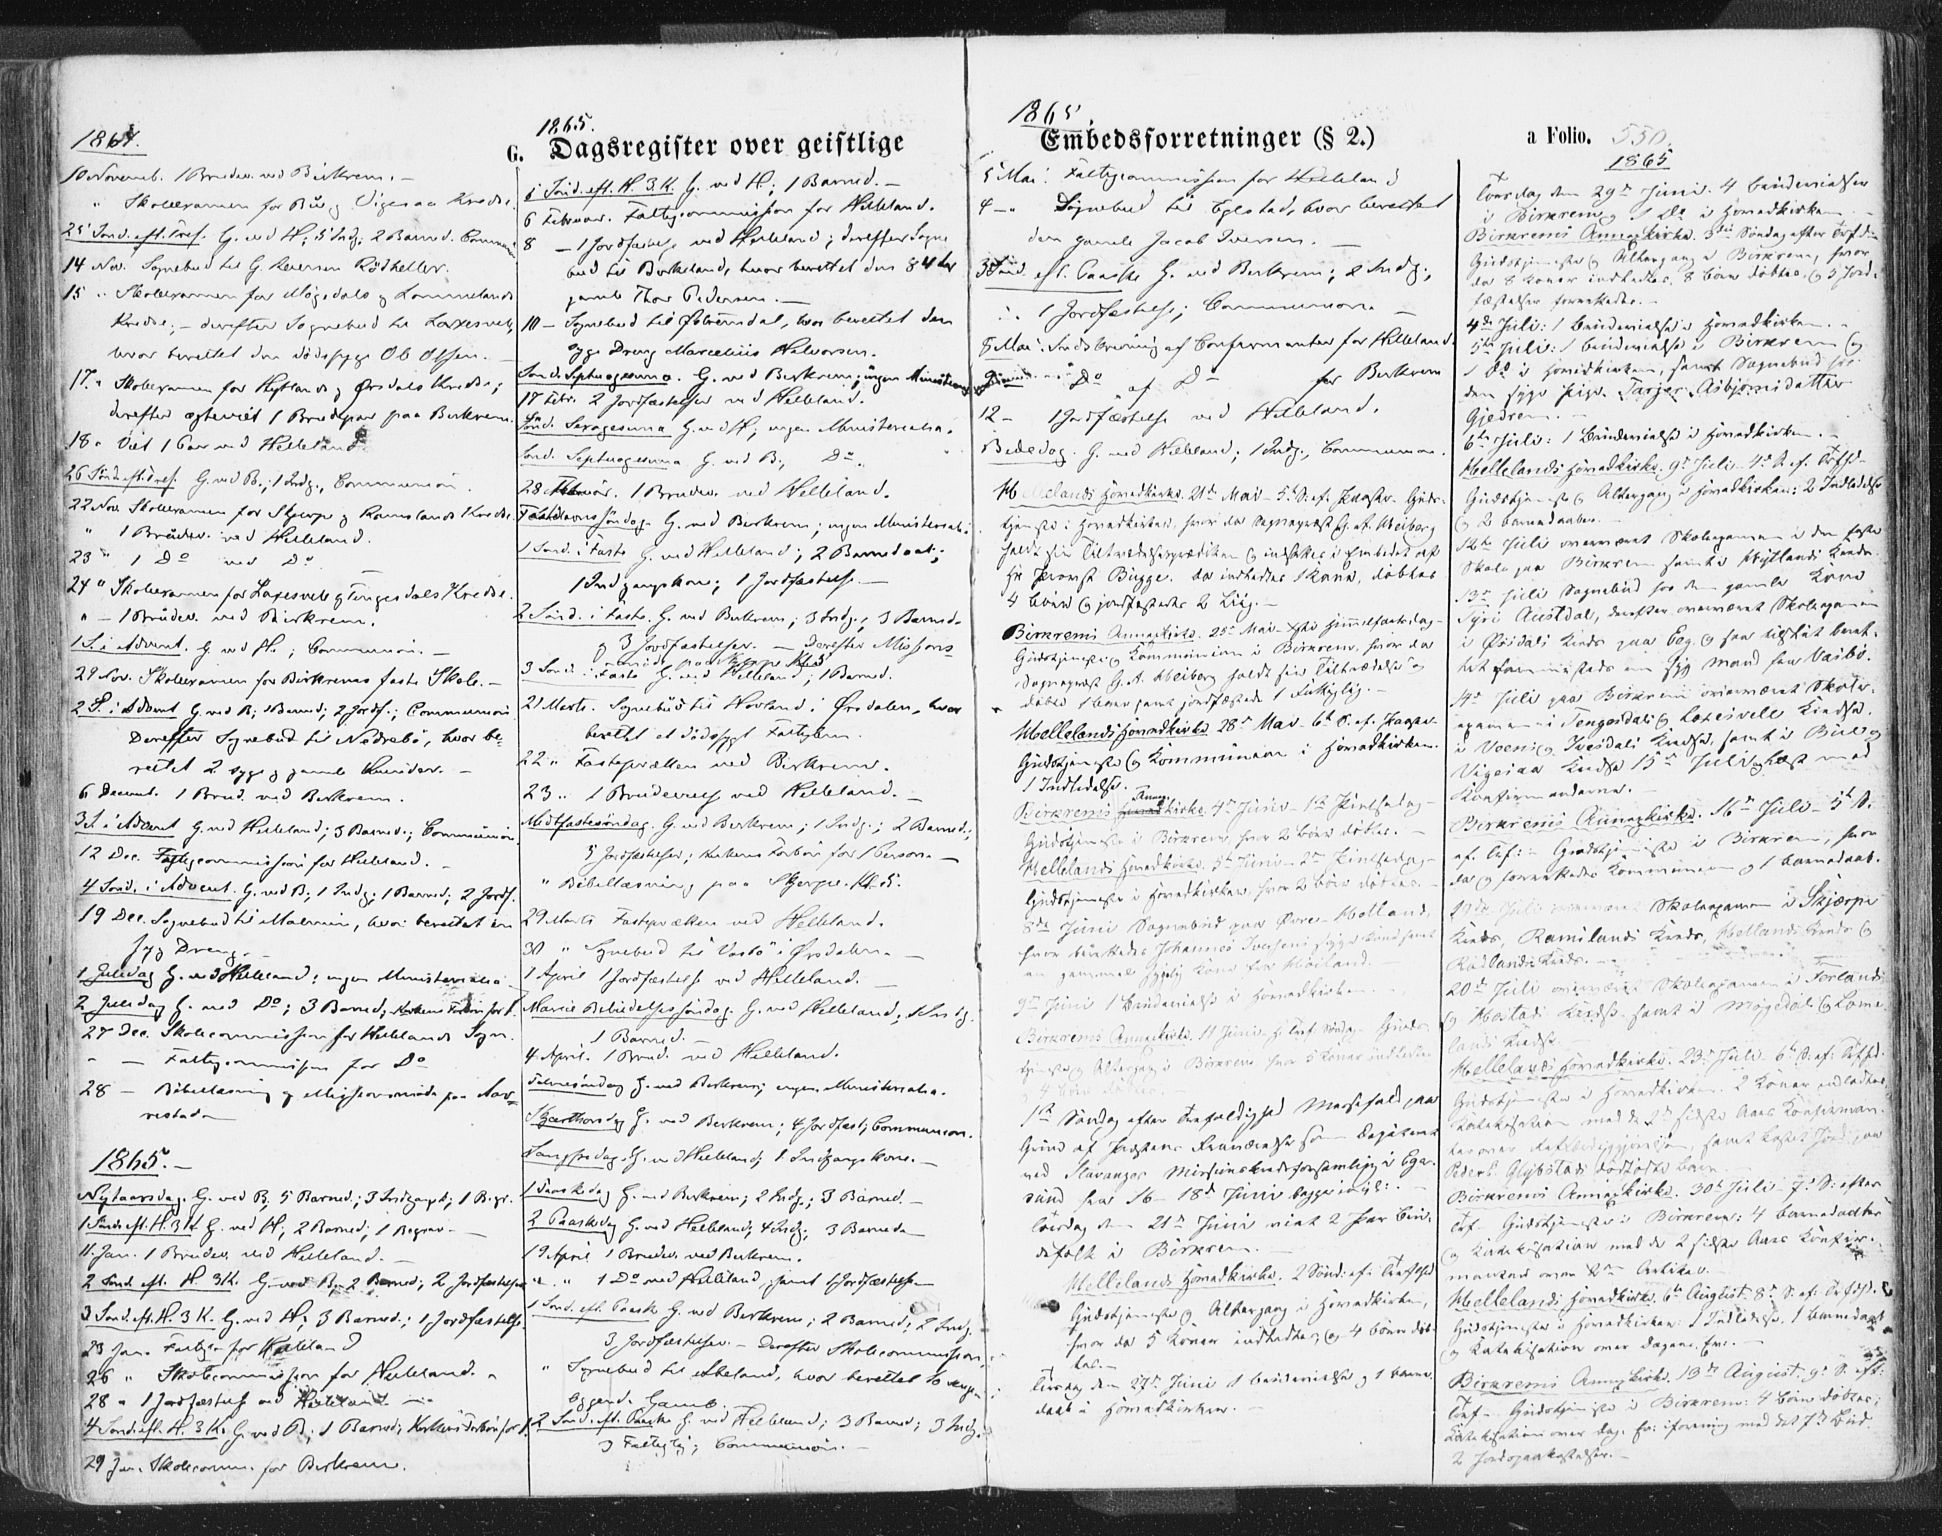 1865.
G. Dagsregister over geistlige
1864.
10 Novemb. 1 Brudev. ved Birkrem. –
" Skoleexamen for Bue og Vigesaa Kreds.
25 Sønd. eft. Tref. G. ved H; 5 Indg; 2 Barned. Commun
14 Nov. Sognebud til G. Iversen Rødheller.
15 " Skoleexamen for Møgedals og Lommelands
Kredse; – derefter Sognebud til Laxesvele,
hvor berettet den dødssyge Ole Olsen. –
17 " Skoleexamen for Høylands og Ørsdals Kredse;
derefter ægteviet 1 Brudepar paa Birkrem.
18 " Viet 1 Par ved Helleland.
26 Sønd. eft. Tref. G. ved B.; 1 Indg., Communion.
22 Nov. Skoleexamen for Skjerpe og Ramslands Kredse.
" 1 Brudev. ved Helleland.
23 " 1 Do ved Do –
24 " Skoleexamen for Laxesvele og Tengesdals Kredse.
" – 1 Brudev. ved Birkrem.
1 S. i Advent. G. ved H.; Communion. –
29 Nov. Skoleexamen for Birkrems faste Skole. –
2 S. i Advent G. ved B; 1 Barned; 2 Jordf.; Communion.
Derefter Sognebud til Nedrebø, hvor be-
rettet 2 syge og gamle Kvinder. –
6 Decemb. 1 Brud. ved Birkrem.
3 S. i Advent G. ved Helleland; 3 Barned.; Communion.
12 Dec. Fattigcommission for Helleland. –
4 Sønd. i Advent. G. ved B; 1 Indg; 1 Barned; 2 Jordf.
19 Dec. Sognebud til Malmein, hvor berettet en
syg Dreng. –
1 Juledag G. ved Helleland; ingen Ministerialia.
2 Juledag G. ved Do; 3 Barned; Kirkens Forbøn for 1.
27 Dec. Skolecommission for Hellelands Sogn.
" – Fattigcommission for Do
28 – Bibellæsning og Missionsmøde paa Aar-
restad. –
1865. –
Nytaarsdag. G. ved B; 5 Barned.; 3 Indgangsk; 1 Begr.
1 Sønd. eft. H. 3 K. G. ved H; 2 Barned; 1 Begrav. –
11 Jan. 1 Brudev. ved Helleland. –
2 Sønd. eft. H. 3 K. G. ved B; 2 Barned; 2 Jordfæstelser
3 Sønd. eft. H. 3 K. G. ved H; 3 Barned.; 1 Jordfæstelse.
23 Jan. Fattigc. for Helleland
26 " Skolecommission for Helleland. "
28 " 1 Jordfæstelse ved Helleland. –
4 Sønd. eft. H. 3 K. G. ved B; 1 Barned; Kirkens Forbøn for 1.
29 Jan. Skolecomm. for Birkrem.
5 Sønd. eft. H. 3 K. G. ved H; 1 Barned. –
6 Februar. Fattigcommission for Helleland.
8 – 1 Jordfæstelse ved Helleland; derefter Sogne
bud til Birkeland, hvor berettet den 84 Aar
gamle Thor Pedersen. –
10 – Sognebud til Østremdal, hvor berettet den
syge Dreng Marcelius Halvorsen.
Sønd. Septuagesima. G. ved Birkrem; ingen Ministerialia
17 Febr. 2 Jordfæstelser ved Helleland.
Sønd. Sexagesima G. ved H; ingen Ministerialia.
Sønd. Septuagesima G. ved B; Do.
28 Februar. 1 Brudev. ved Helleland.
Fastelavnssøndag. G. ved Birkrem; ingen Ministerial.
1 Sønd. i Faste G. ved Helleland; 2 Barnedaab;
1 Indgangskone; 1 Jordfæstelse. –
2 Sønd. i Faste. G. ved Birkrem; 3 Indg., 3 Barned.
og 3 Jordfæstelser. – Derefter Missions-
møde paa Skjerpe Kl. 5
3 Sønd. i Faste G. ved Helleland; 1 Barned.
21 Marts. Sognebud til Hovland i Ørsdalen, hvor
berettet et dødssygt Fattiglem.
22 " Fasteprædiken ved Birkrem.
23 " 1 Brudevielse ved Helleland. –
Midtfastesøndag. G. ved Birkrem; 1 Indg.; 2 Barned.;
5 Jordfæstelser; Kirkens Forbøn for 1 Person. –
" Bibellæsning paa Skjerpe Kl. 5.
29 Marts Fasteprædiken ved Helleland.
30 " Sognebud til Vasbø i Ørsdalen. –
1 April 1 Jordfæstelse ved Helleland. –
Marie Bebudelsessøndag. G. ved Helleland; 1 Indg.
1 Barned. –
4 April. 1 Brud. ved Helleland.
Palmesøndag G. ved Birkrem; ingen Ministerialia.
Skjærthorsdag G. ved Birkrem; 4 Jordfæst; Communion.
Langfredag. G. ved Helleland; 1 Indgangskone. –
1 Paaskedag G. ved Birkrem; 2 Indg.; 3 Barned. –
2 Paaskedag G. ved Helleland; 4 Indg; 3 Barned. –
19 April 1 Brudev. ved Birkrem.
" " 1 Do ved Helleland, samt 1 Jordfæstelse. –
1 Sønd. eft. Paaske G. ved Birkrem; 2 Barned; 2 Indg.
3 Jordfæstelser. – Derefter Skolecommission
" Sognebud til Abeland, hvor berettet
2 Sønd. eft. Paaske G. ved Helleland; 3 Barned; 3 Indg.
3 Fattiglig; Communion. –
1865.
Embedsforretninger (§ 2.)
a Folio. 550.
5 Mai. Fattigcommission for Helleland
4 – " Sognebud til Eglestad, hvor berettet
den gamle Jacob Iversen. –
3 Sønd. eft. Paaske G. ved Birkrem; 2 Indg.;
1 Jordfæstelse; Communion. –
8 Mai. Indskrivning af Confirmanter for Helleland.
9 – Do af Do for Birkrem
12 – 1 Jordfæstelse ved Helleland.
Bededag. G. ved Helleland; 1 Indg., Communion.
Hellelands Hovedkirke. 21de Mai – 5te S. ef. Paaske. Guds-
tjeneste i Hovedkirken, hvor da Sognepræst G. A. Meiberg
holdt sin Tiltrædelsesprædiken og indsattes i Embedet af
Hr Provst Bugge. Da indledtes 1 Kone, døbtes
4 børn og jordfæstedes 2 Liig. –
Birkrems Annexkirke. 25de Mai – Christi Himmelfartsdag –
Gudstjeneste og Kommunion i Birkrem, hvor da
Sognepræst G. A. Meiberg holdt sin Tiltrædelse og
døbte 1 barn samt jordfæstede 1 Fattiglig. –
Hellelands Hovedkirke 28de Mai – 6te S. ef. Paaske.
Gudstjeneste og Kommunion i Hovedkirken.
1 Indledelse.
Birkrems Annexkirke. 4de Juni – 1ste Pintsedag –
Gudstjeneste i Birkrem hvor 2 børn døbtes. –
Hellelands Hovedkirke. 5te Juni – 2den Pintsedag –
Gudstjeneste i Hovedkirken, hvor 2 børn døbtes. –
8de Juni Sognebud paa Øvre Motland,
en gammel sygelig Kone
9de Juni 1 brudevielse i Hovedkirken. –
Birkrems Annexkirke. 11 Juni. H. Tref. Søndag. Guds-
tjeneste og Altergang i Birkrem hvor 5 Koner indledtes
og 4 børn døbtes.
1ste Søndag efter Trefoldighed Messefald paa
Grund af Præstens Fraværelse som Deputeret
ved Stavanger Missionskredsforsamling i Eger-
sund fra 16 – 18de Juni begge incl: –
Onsdag den 21de Juni viet 2 Par bru-
defolk i Birkrem. –
Hellelands Hovedkirke. 2 Sønd: ef: Trefhd
Gudstjeneste og Altergang i Hovedkirken,
hvor da 5 Koner indledtes, og 4 børn døb-
tes. –
Tirsdag den 27de Juni 1 brudevielse og 1 barne-
daab i Hovedkirken. –
1865
Torsdag den 29de Juni. 4 brudevielser
i Birkrem og 1 Do i Hovedkirken. –
Birkrems Annexkirke. 3die Søndag efter Trefd.
Gudstjeneste og Altergang i Birkrem, hvor
da 8 Koner indledtes, 8 børn døbtes, og 5 Jord-
fæstelser forrettedes. –
4de Juli: 1 brudevielse i Hovedkirken. –
5te Juli: 1 brudevielse i Birkrem og
1 Do i Hovedkirken, samt Sognebud hos
den syge Pige Tarjer Asbjørnsdatter
Gjedrem. –
6te Juli: 1 Brudevielse i Hovedkirken. –
Hellelands Hovedkirke. 9de Juli – 4de S. ef. Trefhd.
Gudstjeneste og Altergang i Hovedkirken; 2 Indledelser
og 2 barnedaaber. –
12te Juli overværet Skoleexamen i den faste
Skole paa Birkrem samt i Høylands Kreds.
13de Juli Sognebud hos den gamle Kone
Syri Austdal, derefter overværet Skoleexamen
i Ørsdals Kreds paa Eeg, og
14de Juli paa Birkrem overværet Skole-
examen i Tengesdals og Laxesvele Kredse.
i Veen og Ivesdals Kredse, samt i Bue og
Vigesaa Kredse 15de Juli
Konfirmanderne. –
Birkrems Annexkirke. 16de Juli – 5te S.
ef. Tref: – Gudstjeneste i Birkrem, hvor
da og forrettedes Kommunion og 1 barnedaab.
overværet Skoleexamen i Skjærpe
Kreds, Ramslands Kreds, Hellelands Kreds og
Rødlands Kreds. –
20de Juli overværet Skoleexamen i Forlands
og Mostads Kredse samt i Møgedal og Lome-
lands Kredse –
Hellelands Hovedkirke. 23de Juli 6te S: ef: Trefhd.
Gudstjeneste i Hovedkirken. 2 Koner indledtes,
Katekisation med de 2de sidste Aars Konfirman-
Birkrems Annexkirke. 30te Juli 7de S: efter
Tref. Gudstjeneste i Birkrem: 4 barnedaaber
og Katekisation med de 2 sidste Aars Konfir-
manter over 2den Artikel. –
Hellelands Hovedkirke. 6te August. 8de S. ef: Trefhd.
Gudstjeneste i Hovedkirken. 1 Indledelse. 1 barnedaab
og Katekisation over Dagens Ev: –
Birkrems Annexkirke. 13de August. 9de S. eft:
Tref – Gudstjeneste i Birkrem: 4 børn døbtes;
Katekisation over Dag. Ev: i forening med det 7de Bud.
2 Jordspaakastelser. –